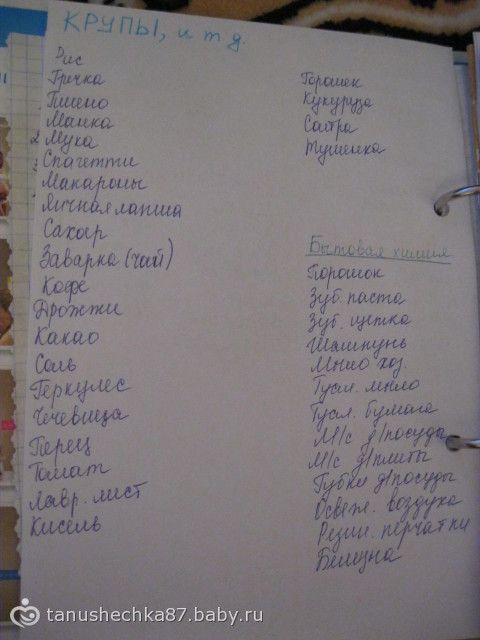 КРУПЫ, и т д.
Рис
Гречка
Пшено
Манка
Мука
Спагетти
Макароны
Яичная лапша
Сахар
Заварка (чай)
Кофе
Дрожжи
Какао
Соль
Геркулес
Чечевица
Перец
Томат
Лавр. лист
Кисель
Горошек
Кукуруза
Сайра
Тушенка
Бытовая химия
Порошок
Зуб. паста
Зуб. щетка
Шампунь
Мыло хоз.
Туал. мыло
Туал. бумага
М/с д/посуды
М/с д/плиты
Губки д/посуды
Освеж. воздуха
Резин. перчатки
Белизна
tanushechka87.baby.ru